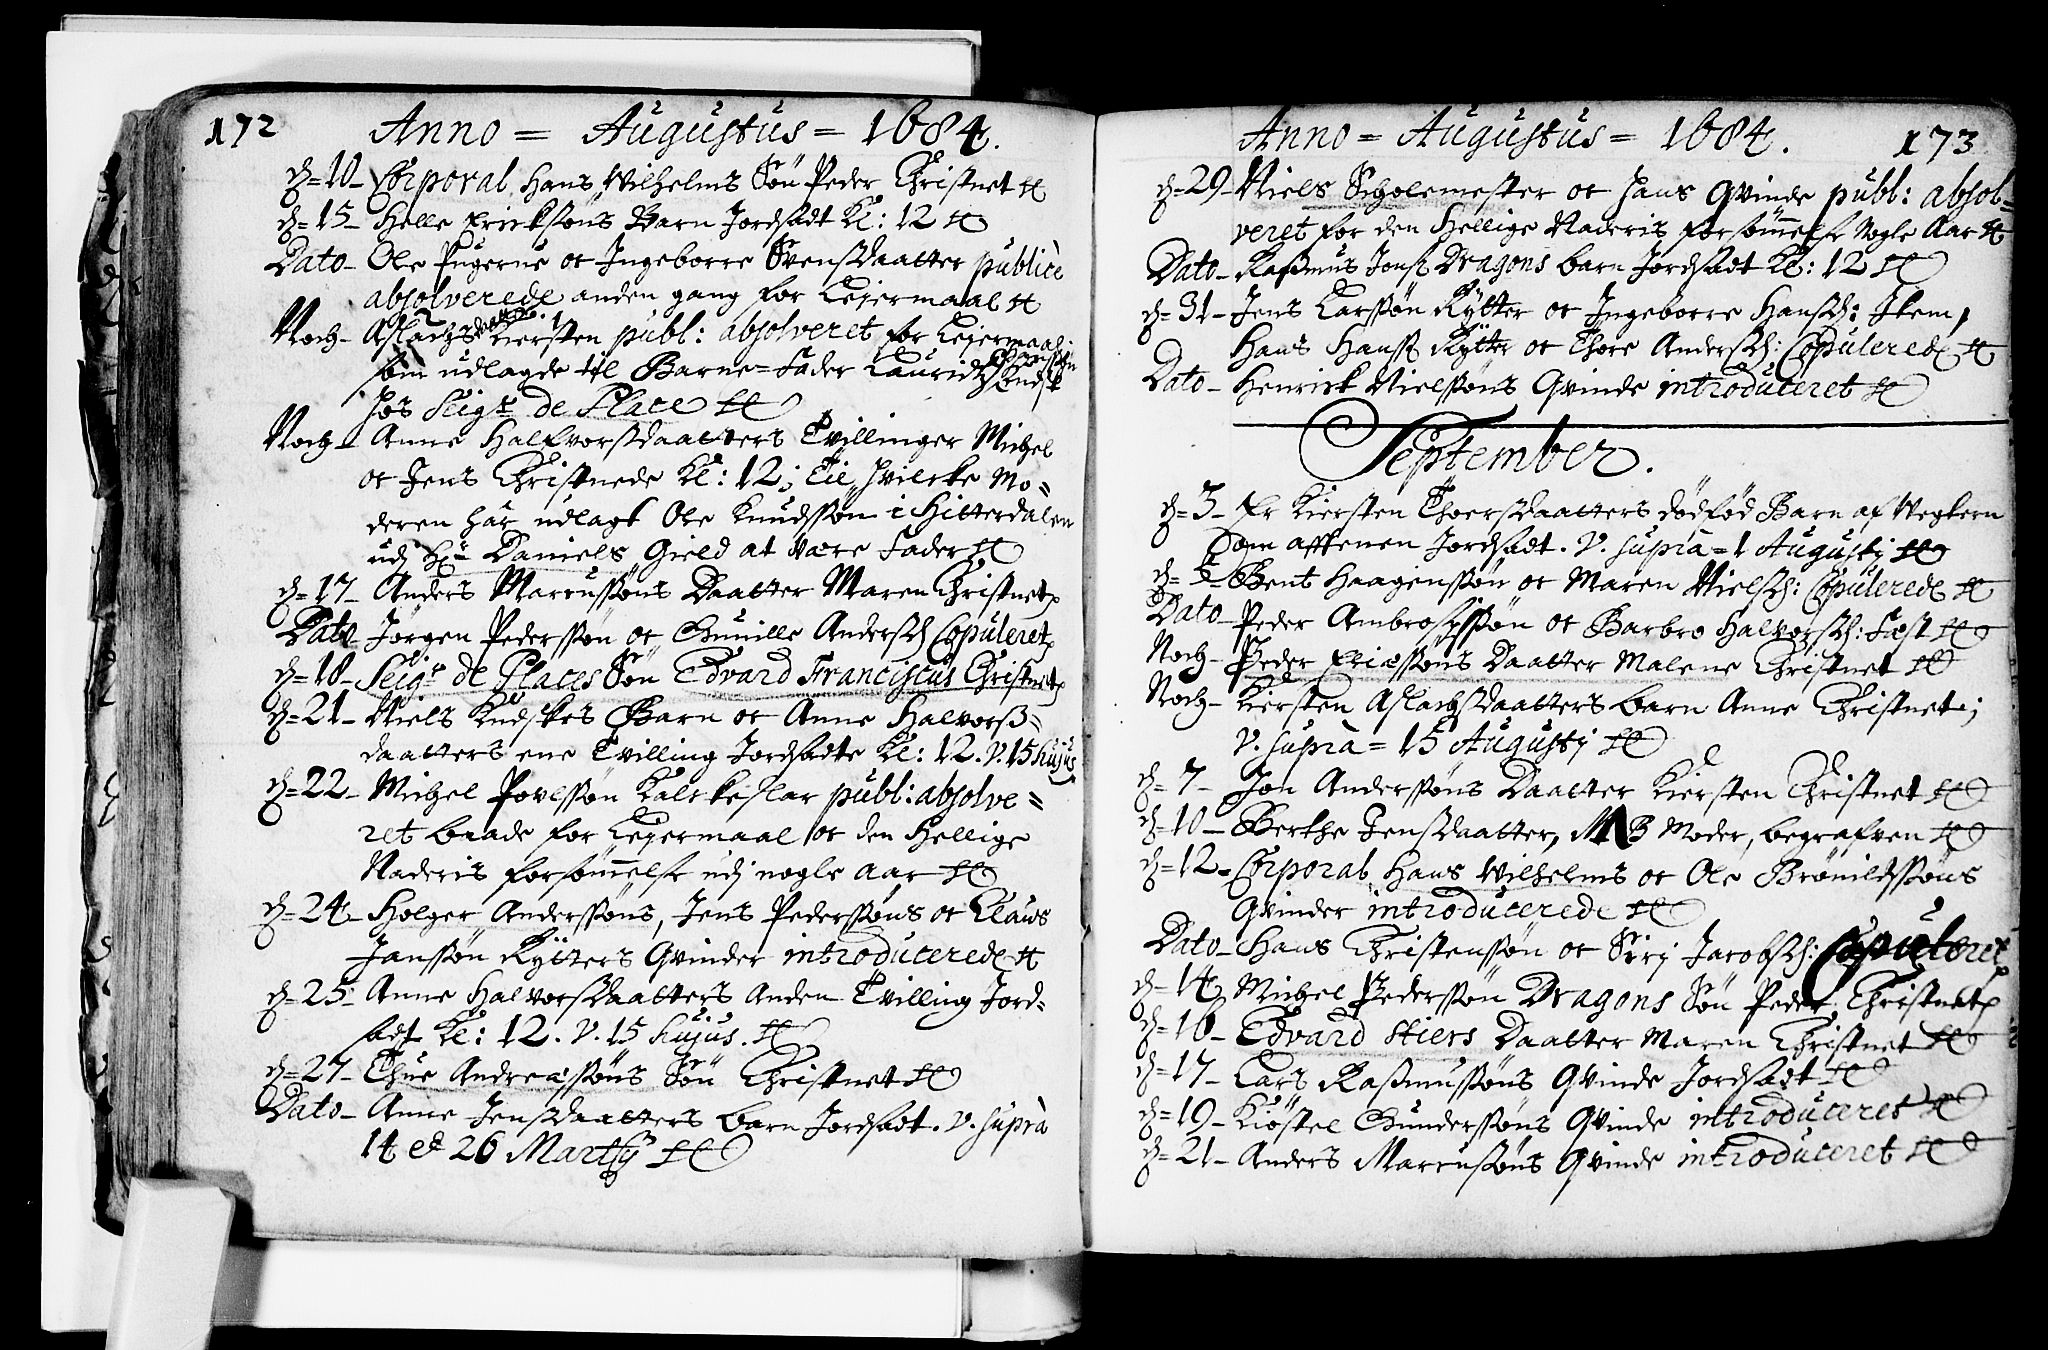 172 Anno = Augustus = 1684.
d=10- Corporal Hans Wilhelms Sön Peder Christnet
d=15- Helle Ericksöns Barn Jordsadt Kl: 12
Dato- Ole Pugerue oc Ingeborre Svensdaatter publicè
absolverede anden gang for Leiermaal
Noch- Aslachsdaatter Kiersten publ: absolveret for Leiermaal
som udlagde til Barne=Fader Lauridtz
hos Seigr de Place
Noch- Anne Halfvorsdaatters Tvillinger Michel
oc Jens Christnede Kl: 12; Til hvilcke Mo=
deren har udlagt Ole Knudssøn i Hitterdalen
udj Hr Daniels Gield at være Fader
d=17- Anders Marcussøns Daatter Maren Christnet
Dato Jørgen Pederssøn oc Gunille Andersd Copuleret
d=18- Seigr de Places Sön Edvard Franciscus Christnet
d=21- Niels Kudskes Barn oc Anne Halvors=
daatters ene Tvilling Jordsadte Kl: 12. v. 15 hujus
d=22- Michel Povlssøn Kalckeslar publ: absolve=
ret baade for Leiermaal oc den Hellige
Naderis forsømmelse udj nogle Aar
d=24- Holger Anderssøns, Jens Pederssøns oc Claus
Janssøn Rytters Qvinder introducerede
d=25- Anne Halvorsdaatters Anden Tvilling Jord=
sadt Kl: 12. v. 15 hujus.
d=27- Thue Andreæssøns Sön Christnet
Dato- Anne Jensdaatters barn Jordsadt. v. suprà
14 & 26 Martij
Anno = Augustus = 1684. 173
d=29- Niels Scholemester oc hans Qvinde publ: absol=
veret for den Hellige Naderis forsømmelse Nogle Aar
Dato- Rasmus Jens Dragons barn Jordsadt Kl: 12
d=31- Jens Larssøn Rytter oc Ingeborre Hansd: Item,
Hans Hanss Rytter oc Thore Andersd: Copulerede
Dato- Henrick Nielssøns Qvinde introduceret
September.
d=3- Er Kiersten Thoersdaatters dødfød Barn af
om afftenen Jordsadt. v. suprà = 1 Augustj
d=5 Bent Haagenssøn oc Maren Nielsd: Copulerede
Dato- Peder Ambrosjssøn oc Barbro Halvorsd: Fæst
Noch- Peder Ericssøns Daatter Malene Christnet
Noch- Kiersten Aslachsdaatters barn Anne Christnet;
v. suprà = 15 Augustj
d=7- Jon Anderssøns Daatter Kiersten Christnet
d=10- Berthe Jensdaatter, MB Moder, begrafven
d=12- Corporal Hans Wilhelms oc Ole Brønildssøns
Qvinder introducerede
Dato- Hans Christenssøn oc Sirj Jacobsd: Copuleret
d=14 Michel Pederssøn Dragons Sön Peder Christnet
d=16- Edvard Stiers Daatter Maren Christnet
d=17- Lars Rasmussøns Qvinde Jordsadt
d=19- Kiøstel Gunderssøns Qvinde introduceret
d=21- Anders Marcussøns Qvinde introduceret